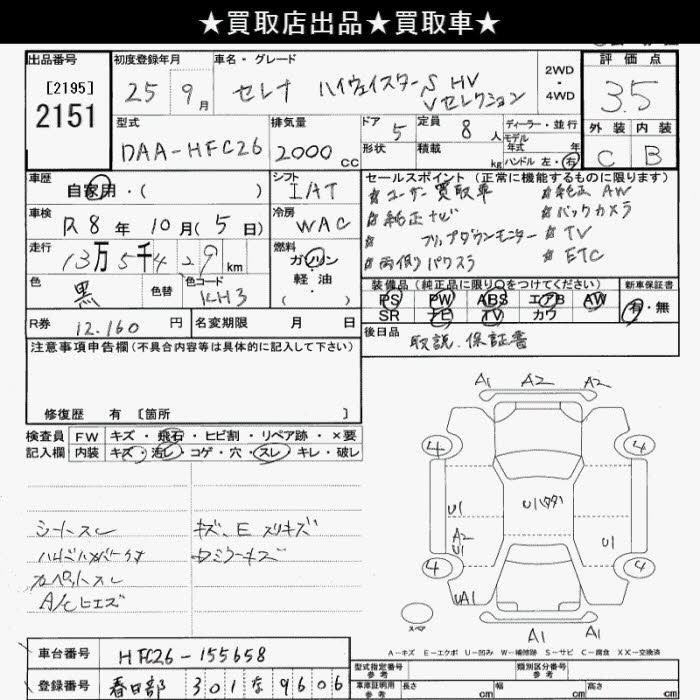 ★買取店出品★買取車★
出品番号 初度登録年月 車名・グレード 評価点
[2195] 2151 25 9月 セレナ ハイウェイスターS HV Vセレクション 2WD・4WD 3.5
型式 排気量 ドア 定員 ディーラー・並行 外装 内装
DAA-HFC26 2000cc 5 8人 モデル年式 年 C B
形状 積載 kg ハンドル 左・右
車歴 シフト セールスポイント(正常に機能するものに限ります)
自家用・( ) IAT ユーザー買取車 純正AW
車検 冷房 純正ナビ バックカメラ
R8年10月(5日) WAC フリップダウンモニター TV
走行 燃料 両側パワスラ ETC
13万5千429km ガソリン・軽油・( )
色 色替 色コード 装備品(純正品に限り○をつけてください) 新車保証書
黒 KH3 PS PW ABS エアB AW 有・無
SR ナビ TV カワ
R券 12.160円 名変期限 月 日 後日品 取説.保証書
注意事項申告欄(不具合内容等は具体的に記入して下さい)
修復歴 有 [箇所 ]
検査員 FW キズ・飛石・ヒビ割・リペア跡・×要
記入欄 内装 キズ・汚レ・コゲ・穴・スレ・キレ・破レ
A1 A2 A2
4 4
U1 U1
A2
U1 U1
4 4
UA1
A1 A1
スペア
シートスレ キズ、E スリキズ
カーペットスレ
A/Cヒエズ
A-キズ E-エクボ U-凹み W-補修跡 S-サビ C-腐食 XX-交換済
車台番号 HFC26-155658
型式指定番号 参考 類別区分番号 参考
登録番号 春日部 301 な 9606
車庫証明用 参考 長さ cm 幅 cm 高さ cm